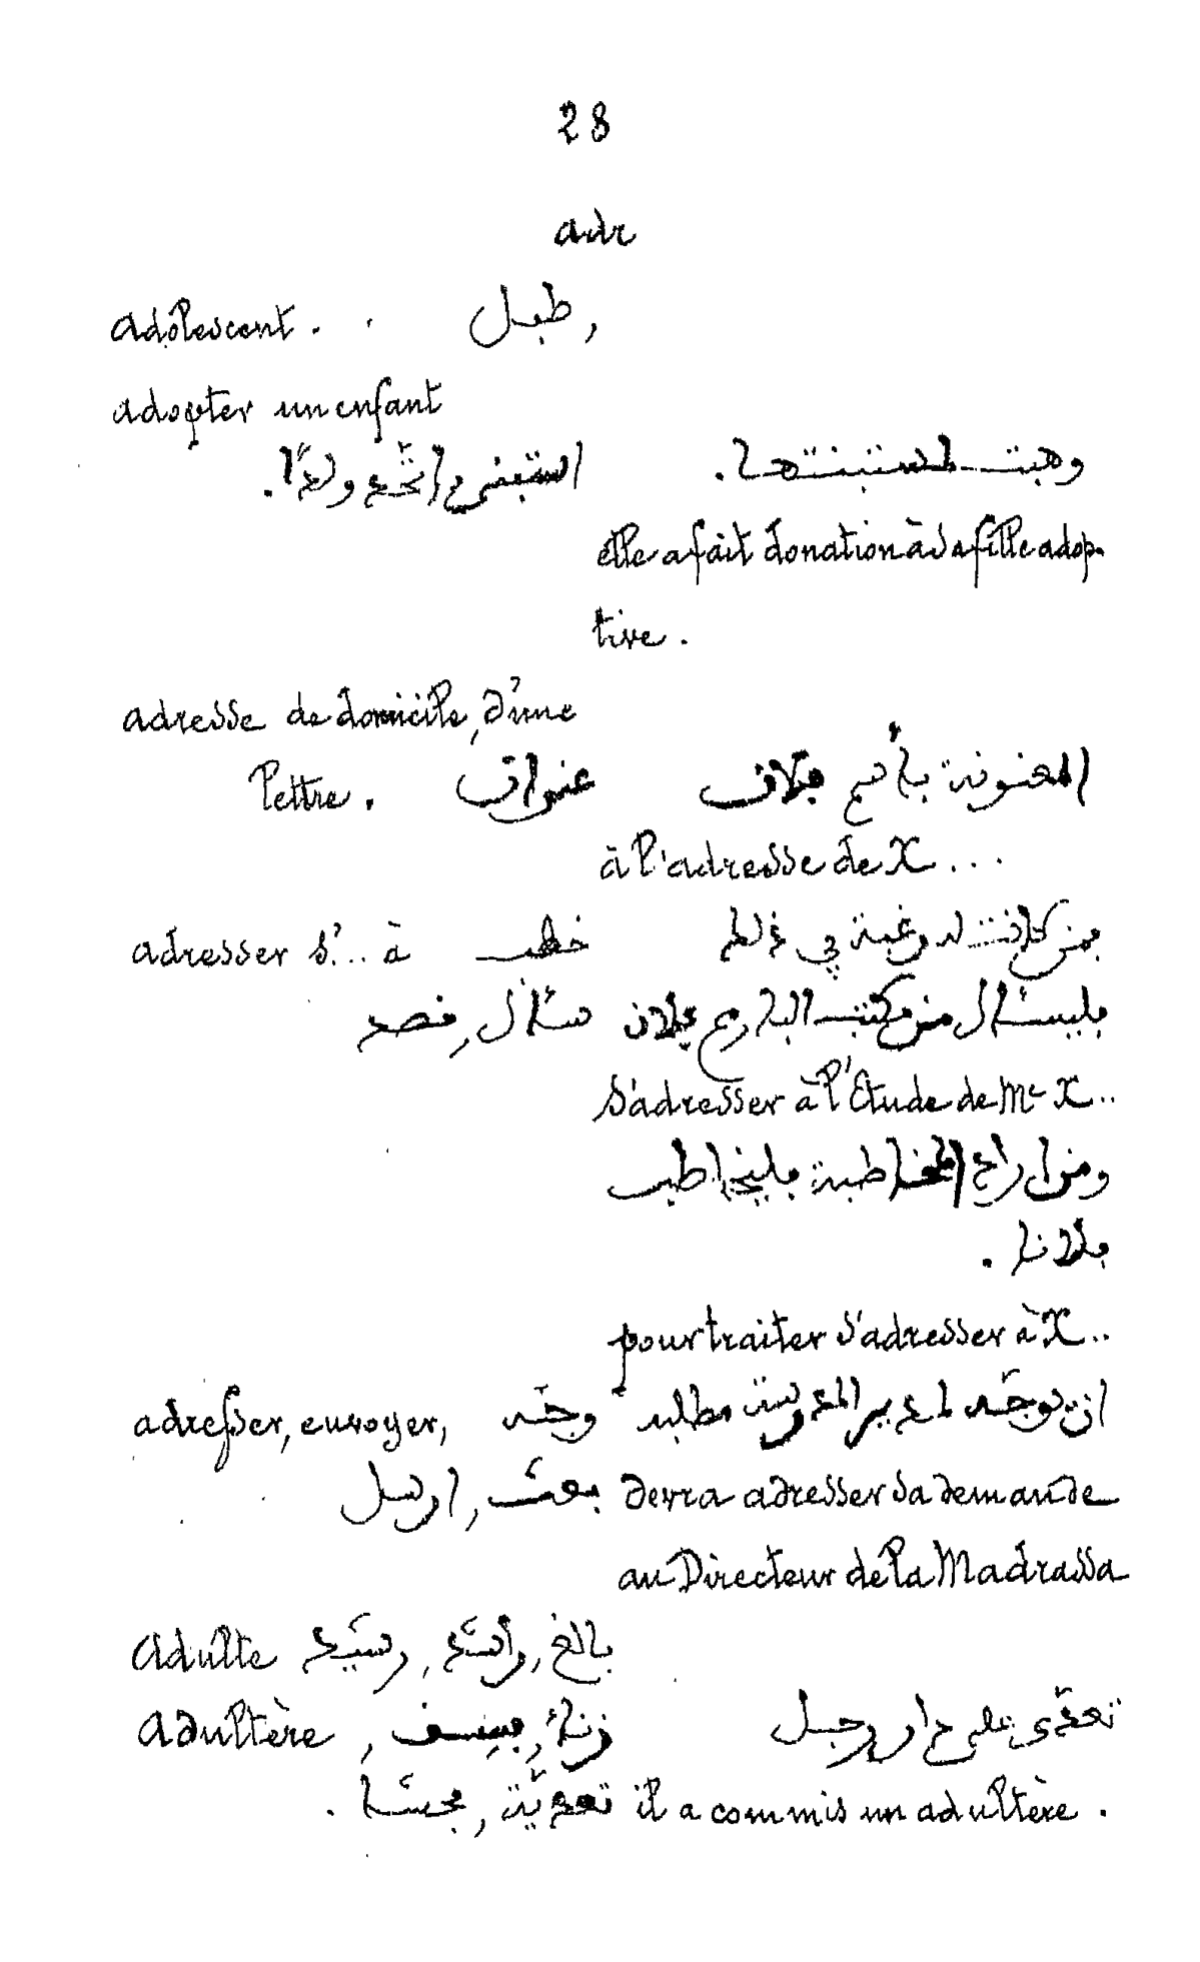 28
adr
adolescent . . طفل ,
adopter un enfant
استبنى, اتّخذ ولدًا . وهبت لمستبنتها .
elle a fait donation à sa fille adop-
tive .
adresse de domicile, d'une
lettre . عنوان المعنونة بأسم فلان
à l'adresse de X ...
adresser s'... à خطب فمن كانت له رغبة في ذلك
سئال, قصد فليسئال من مكتب البارع فلان
S'adresser à l'Etude de Me X ..
ومن اراد المخاطبة فليخاطب
فلانا .
pour traiter s'adresser à X ..
adresser, envoyer, وجّه ان يوجّه لمدير المدرسة مطلبه
بعث, ارسل devra adresser sa demande
au Directeur de la Madrassa
adulte بالغ, راشد, رشيد
adultère , زناء, فسق تعدّى على دار رجل
تعديّة, فحشا . il a commis un adultère .